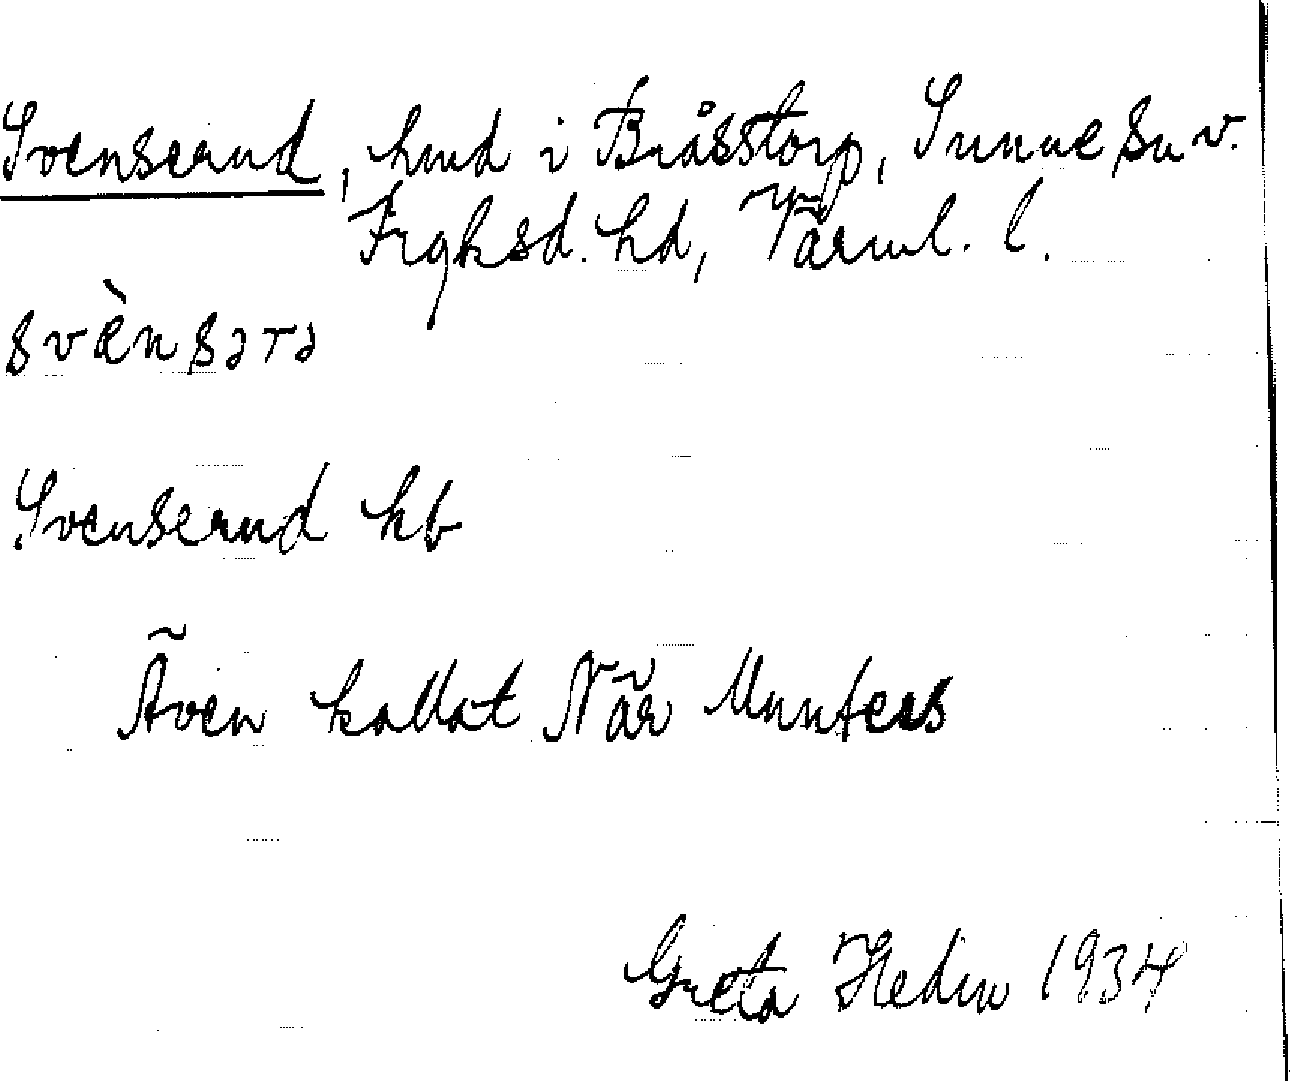 Svenserud, hmd i Bråsstorp, Sunne sn v.
Fryksd. hd, Värml. l.
svèn sərə
Svenserud kb
Även kallat När Munters
Greta Hedin 1934